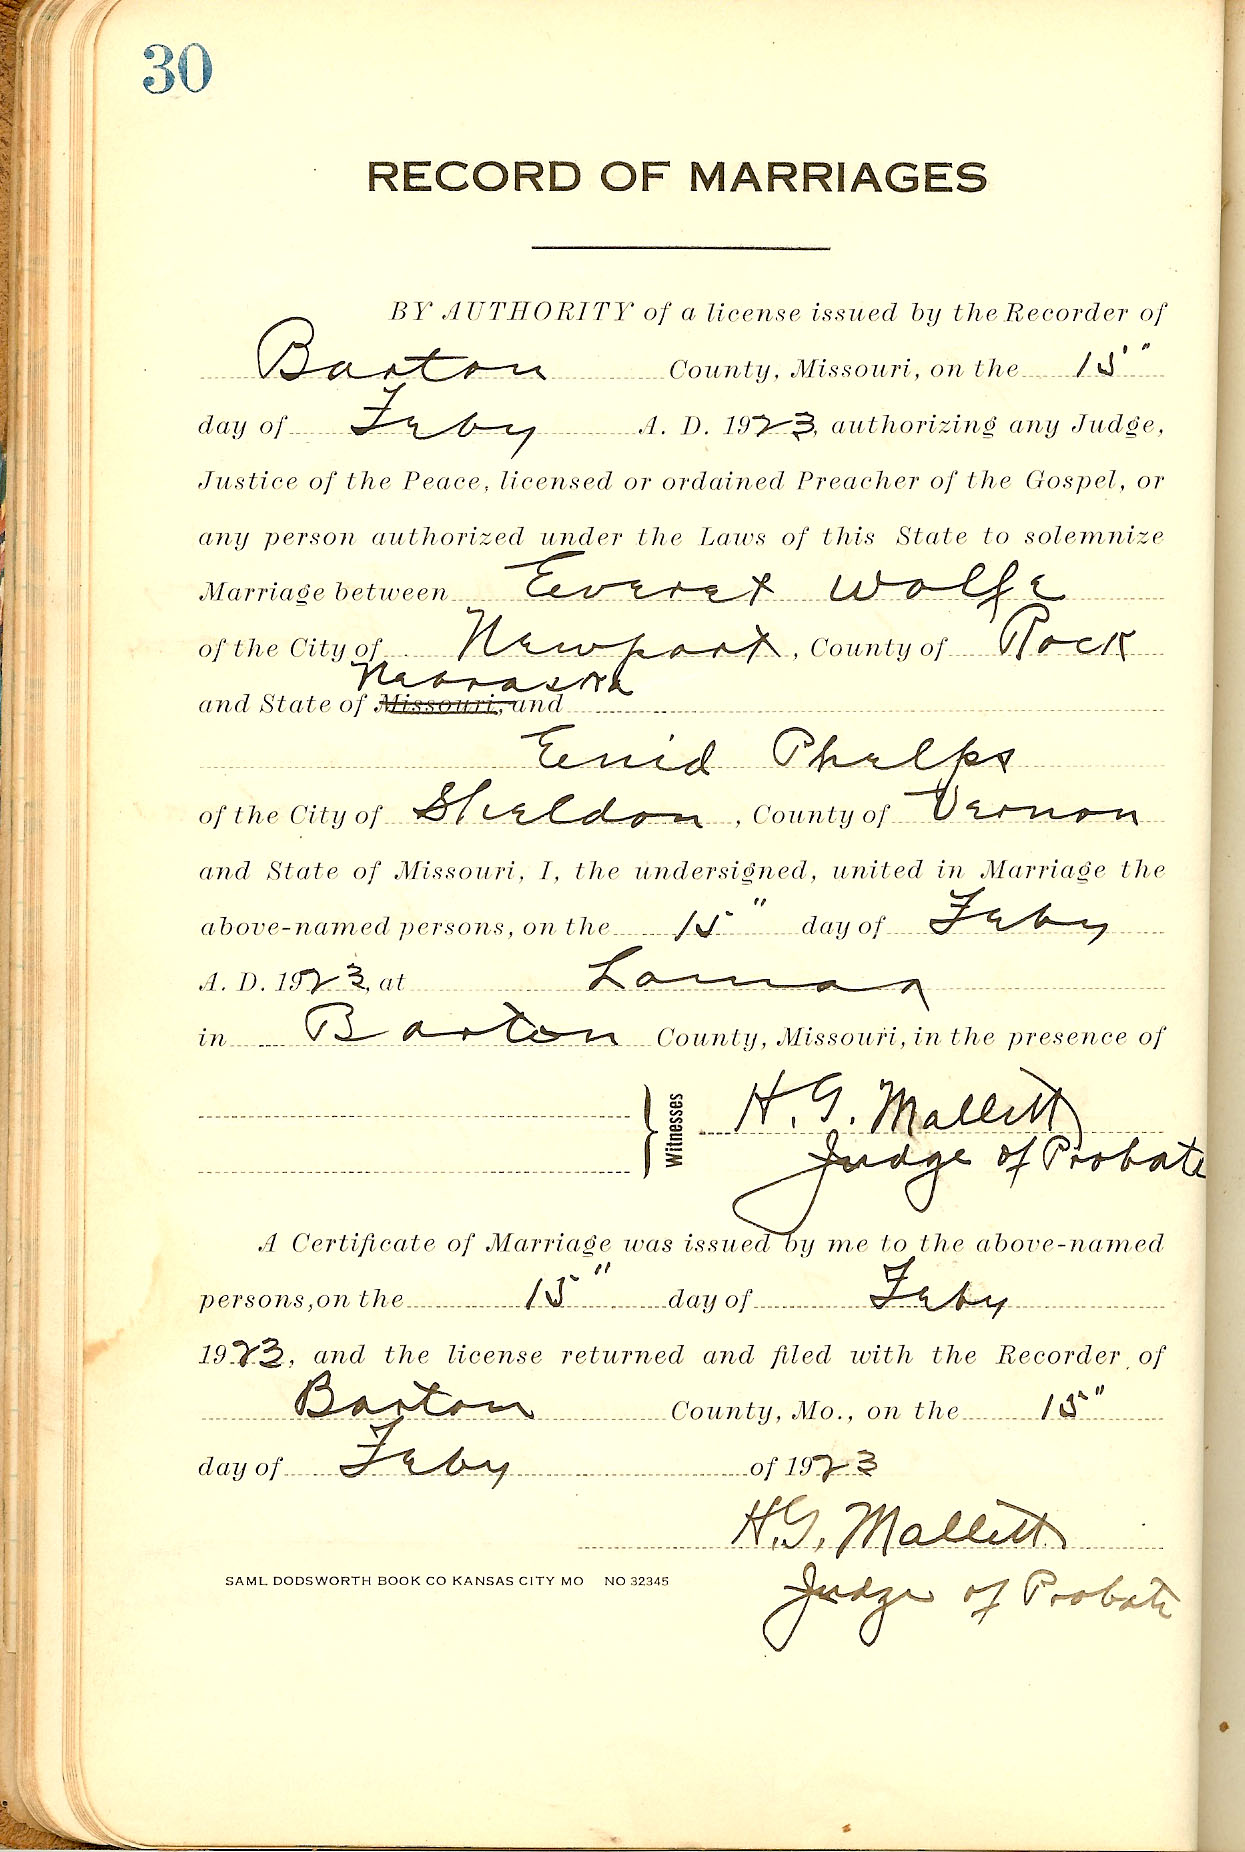 30
RECORD OF MARRIAGES
BY AUTHORITY of a license issued by the Recorder of
Barton County, Missouri, on the 15"
day of Feby A. D. 1923, authorizing any Judge,
Justice of the Peace, licensed or ordained Preacher of the Gospel, or
any person authorized under the Laws of this State to solemnize
Marriage between Everet Wolfe
of the City of Newport, County of Rock
Nebraska
and State of Missouri, and
Enid Phelps
of the City of Sheldon, County of Vernon
and State of Missouri, I, the undersigned, united in Marriage the
above-named persons, on the 15" day of Feby
A. D. 1923, at Lamar
in Barton County, Missouri, in the presence of
Witnesses H. G. Mallett
Judge of Probate
A Certificate of Marriage was issued by me to the above-named
persons, on the 15" day of Feby
1923, and the license returned and filed with the Recorder of
Barton County, Mo., on the 15"
day of Feby of 1923
H.G. Mallett
SAML DODSWORTH BOOK CO KANSAS CITY MO NO 32345
Judge of Probate